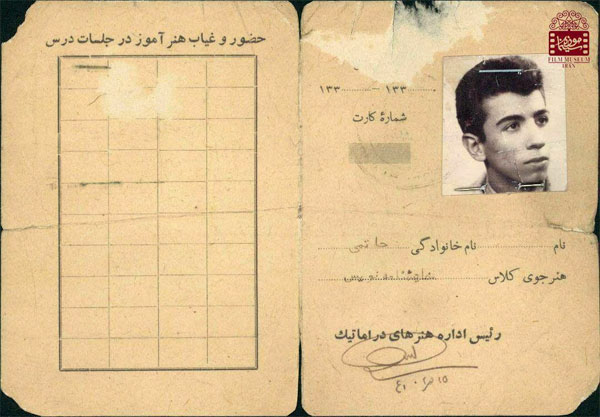 حضور و غیاب هنرآموز در جلسات درس
موزه سینما
FILM MUSEUM
IRAN
۱۳۳ ۱۳۳
شمارهٔ کارت
نام نام خانوادگی حاتمی
هنرجوی کلاس نمایشنامه نویسی
رئیس اداره هنرهای دراماتیک